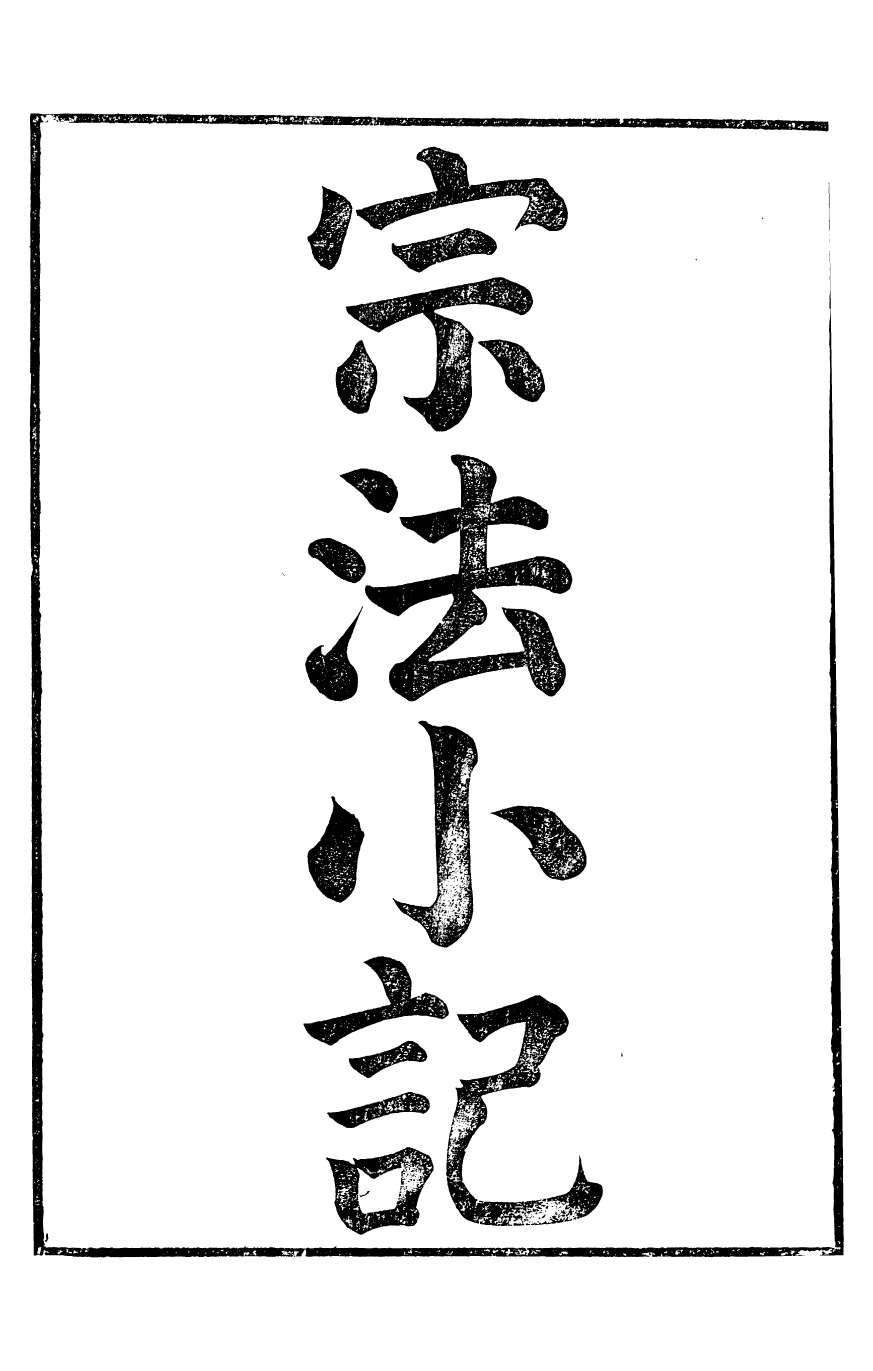 宗法小記